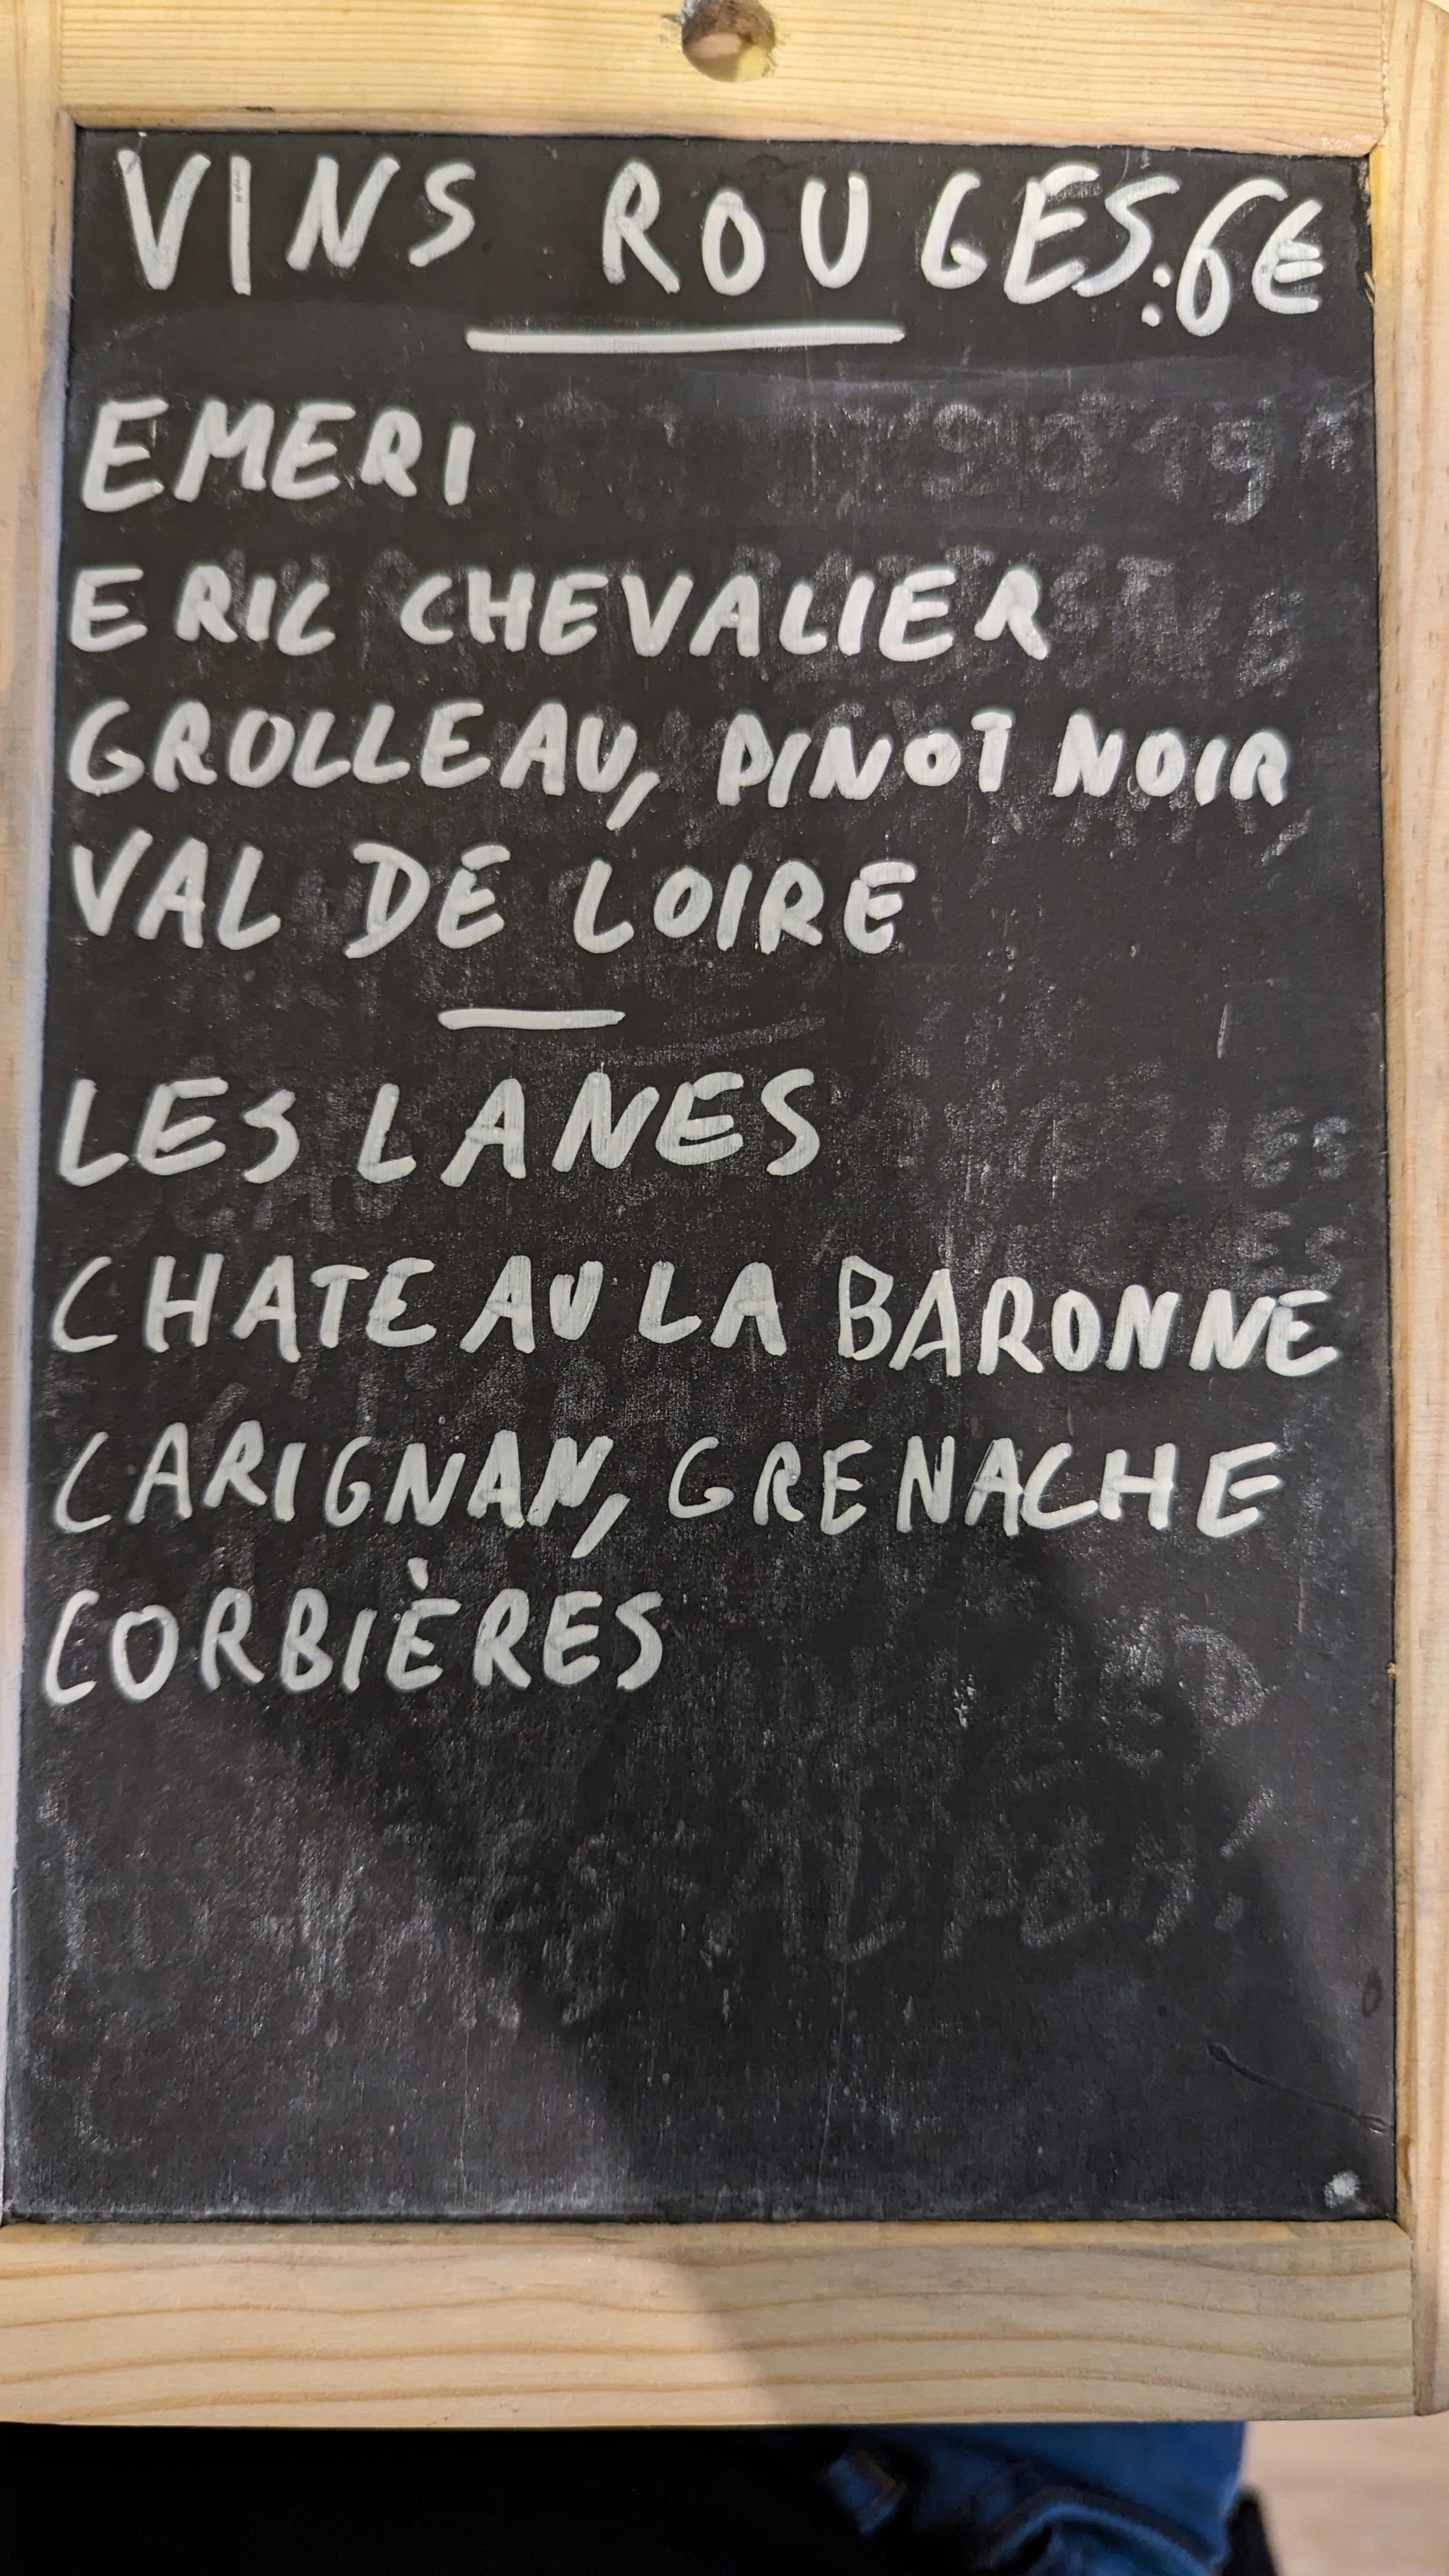 VINS ROUGES:6€
EMERI
ERIC CHEVALIER
GROLLEAU, PINOT NOIR
VAL DE LOIRE
LES LANES
CHATEAU LA BARONNE
CARIGNAN, GRENACHE
CORBIÈRES